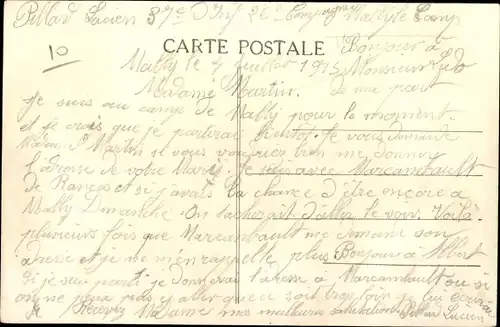 Pillard Lucien 37e D'Inf 26e Compagnie Mailly le Camp
10
CARTE POSTALE
Bonjour à
Monsieur Ludo
de ma part
Mailly le 4 Juillet 1915
Madame Martin.
Je suis au camp de Mailly pour le moment.
et je crois que je partirai bientot. Je vous demande
Madame Martin si vous voudriez bien me donner
l'adresse de votre Mari. Je suis avec Marcambault
de Rancos et si j'avais la chance d'être encore a
Mailly Dimanche. On tacherait d'aller le voir. Voilà
plusieurs fois que Marcambault me demande son
adresse et je ne m'en rappelle plus. Bonjour à Albert
Si je suis parti je donnerai l'adresse à Marcambault ou si
on ne peux pas y aller que ce soit trop loin je lui écrirai
Je Recevez Madame mes meilleures salutations. Pillard Lucien